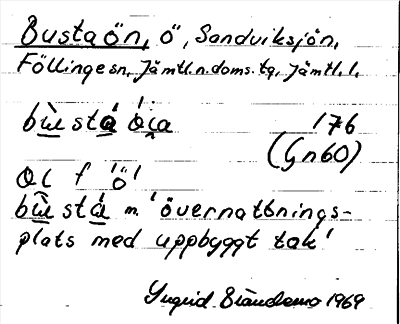 Bustaön, ö, Sandviksjön,
Föllinge sn, Jämtl.n.doms.tg, Jämtl.l.
bùstá ȯ́ıa 176
(Gn60)
oı f 'ö'
bùstá m. 'övernattnings-
plats med uppbyggt tak'
Ingrid 1969